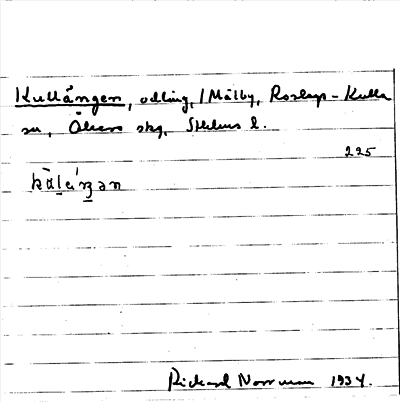 Kullängen, odling, / Mälby, Roslags-Kulla
sn, Åkers skg, Sthlms l.
225
Rickard Norrman 1934.